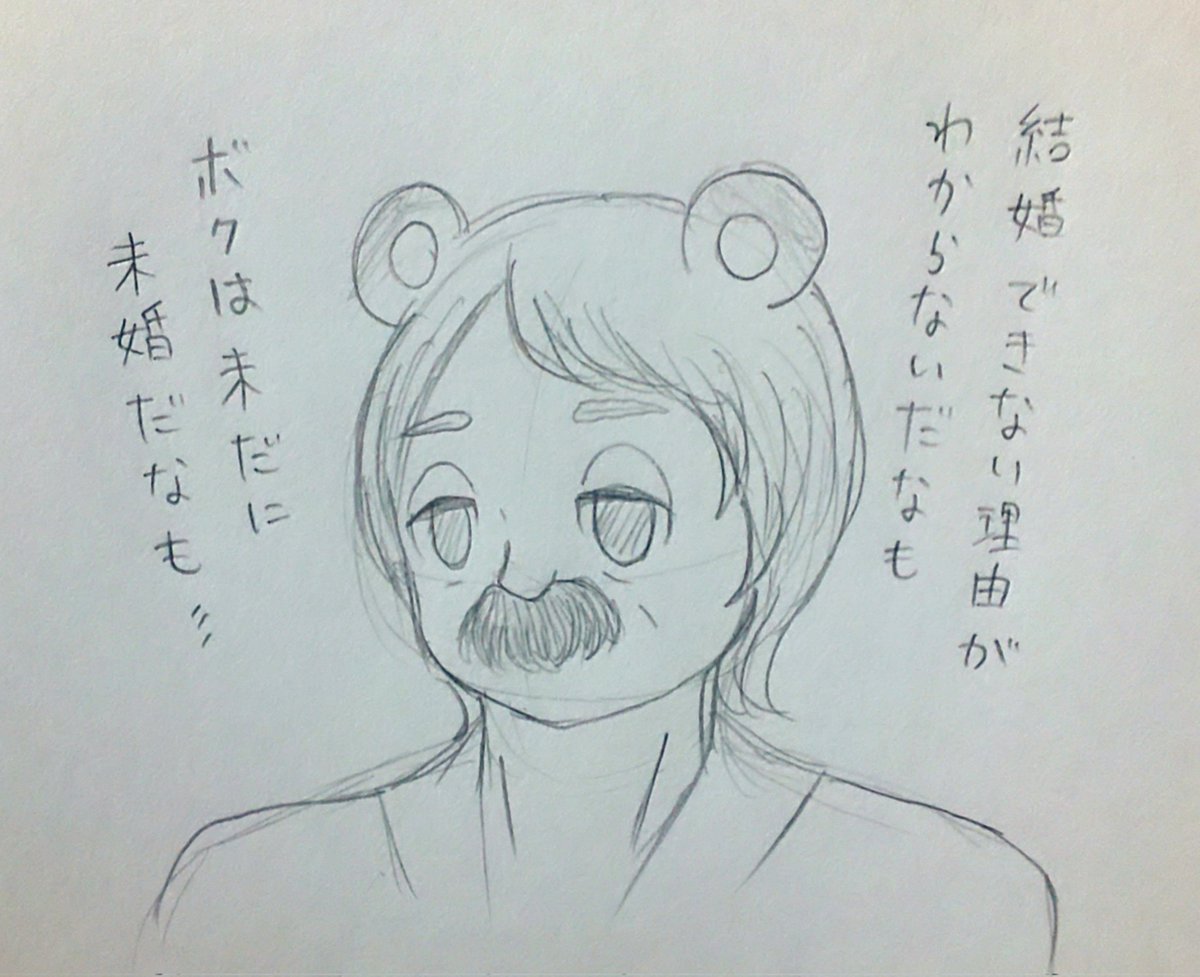 結婚できない理由が
わからないだなも
ボクは未だに
未婚だなも〃